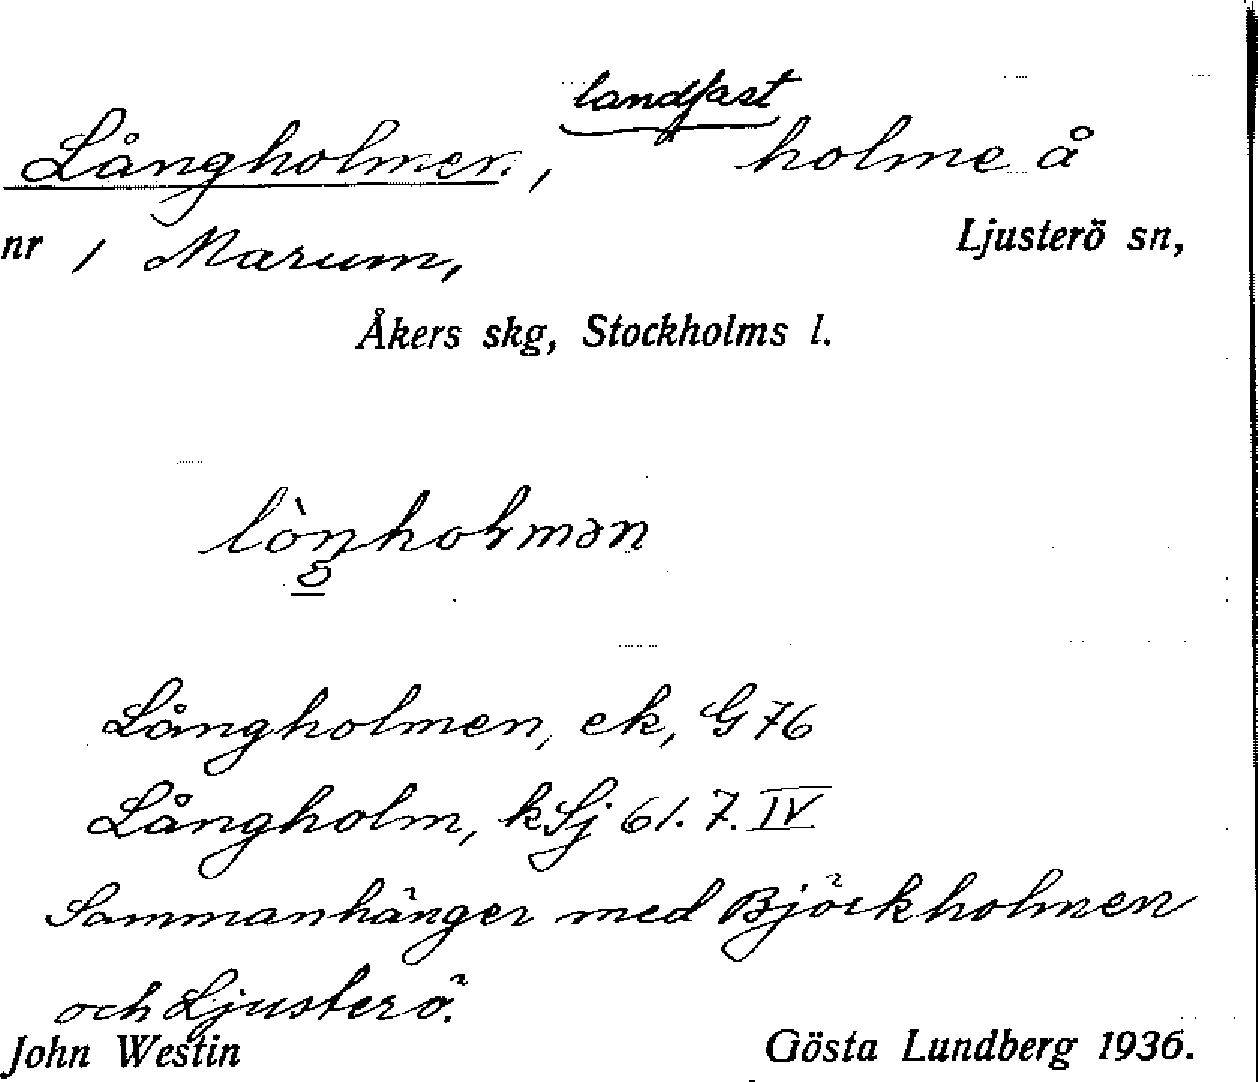 landfast
Långholmen, holme å
nr 1 Marum, Ljusterö sn,
Åkers skg, Stockholms l.
Långholmen, ek, G 76
Långholm, kSj 61.7.IV
Sammanhänger med Björkholmen
och Ljusterö.
John Westin Gösta Lundberg 1936.